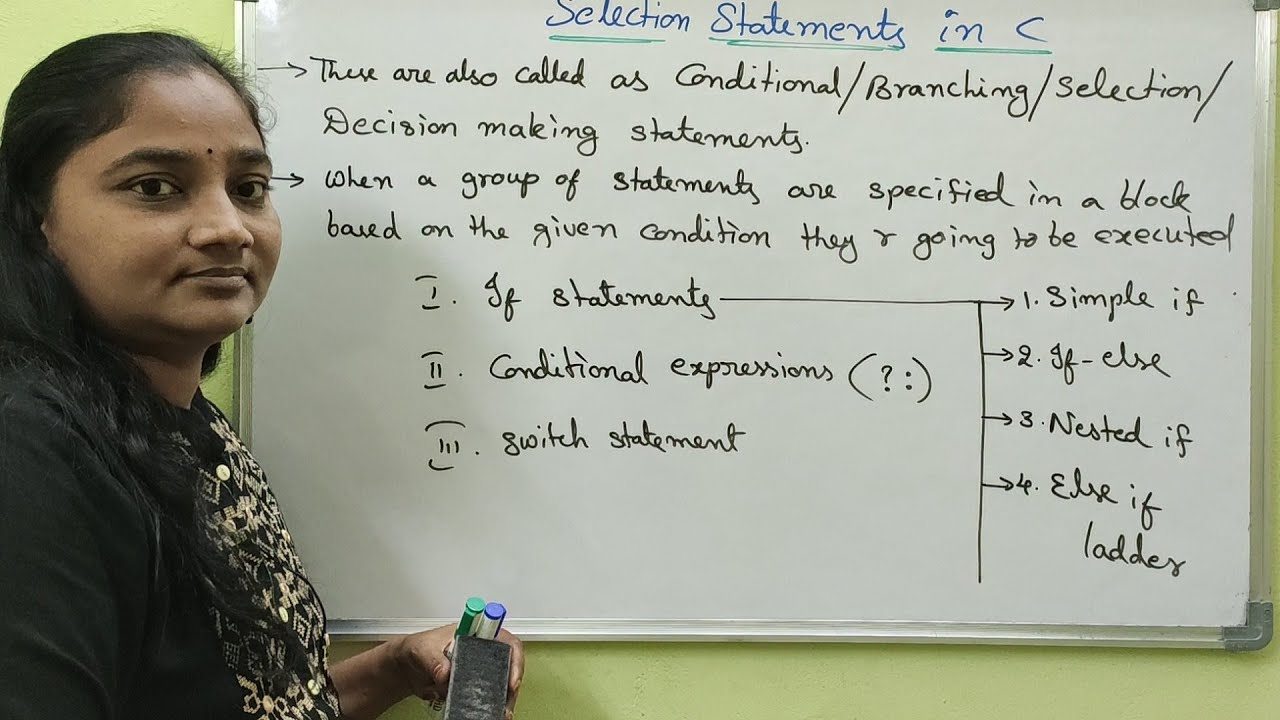 Selection Statements in C
→ These are also called as Conditional/Branching/Selection/
Decision making statements.
→ When a group of statements are specified in a block
based on the given condition they r going to be executed
I. If statements → 1. Simple if
→ 2. If-else
II. Conditional expressions (? :)
→ 3. Nested if
III. switch statement
→ 4. Else if
ladder